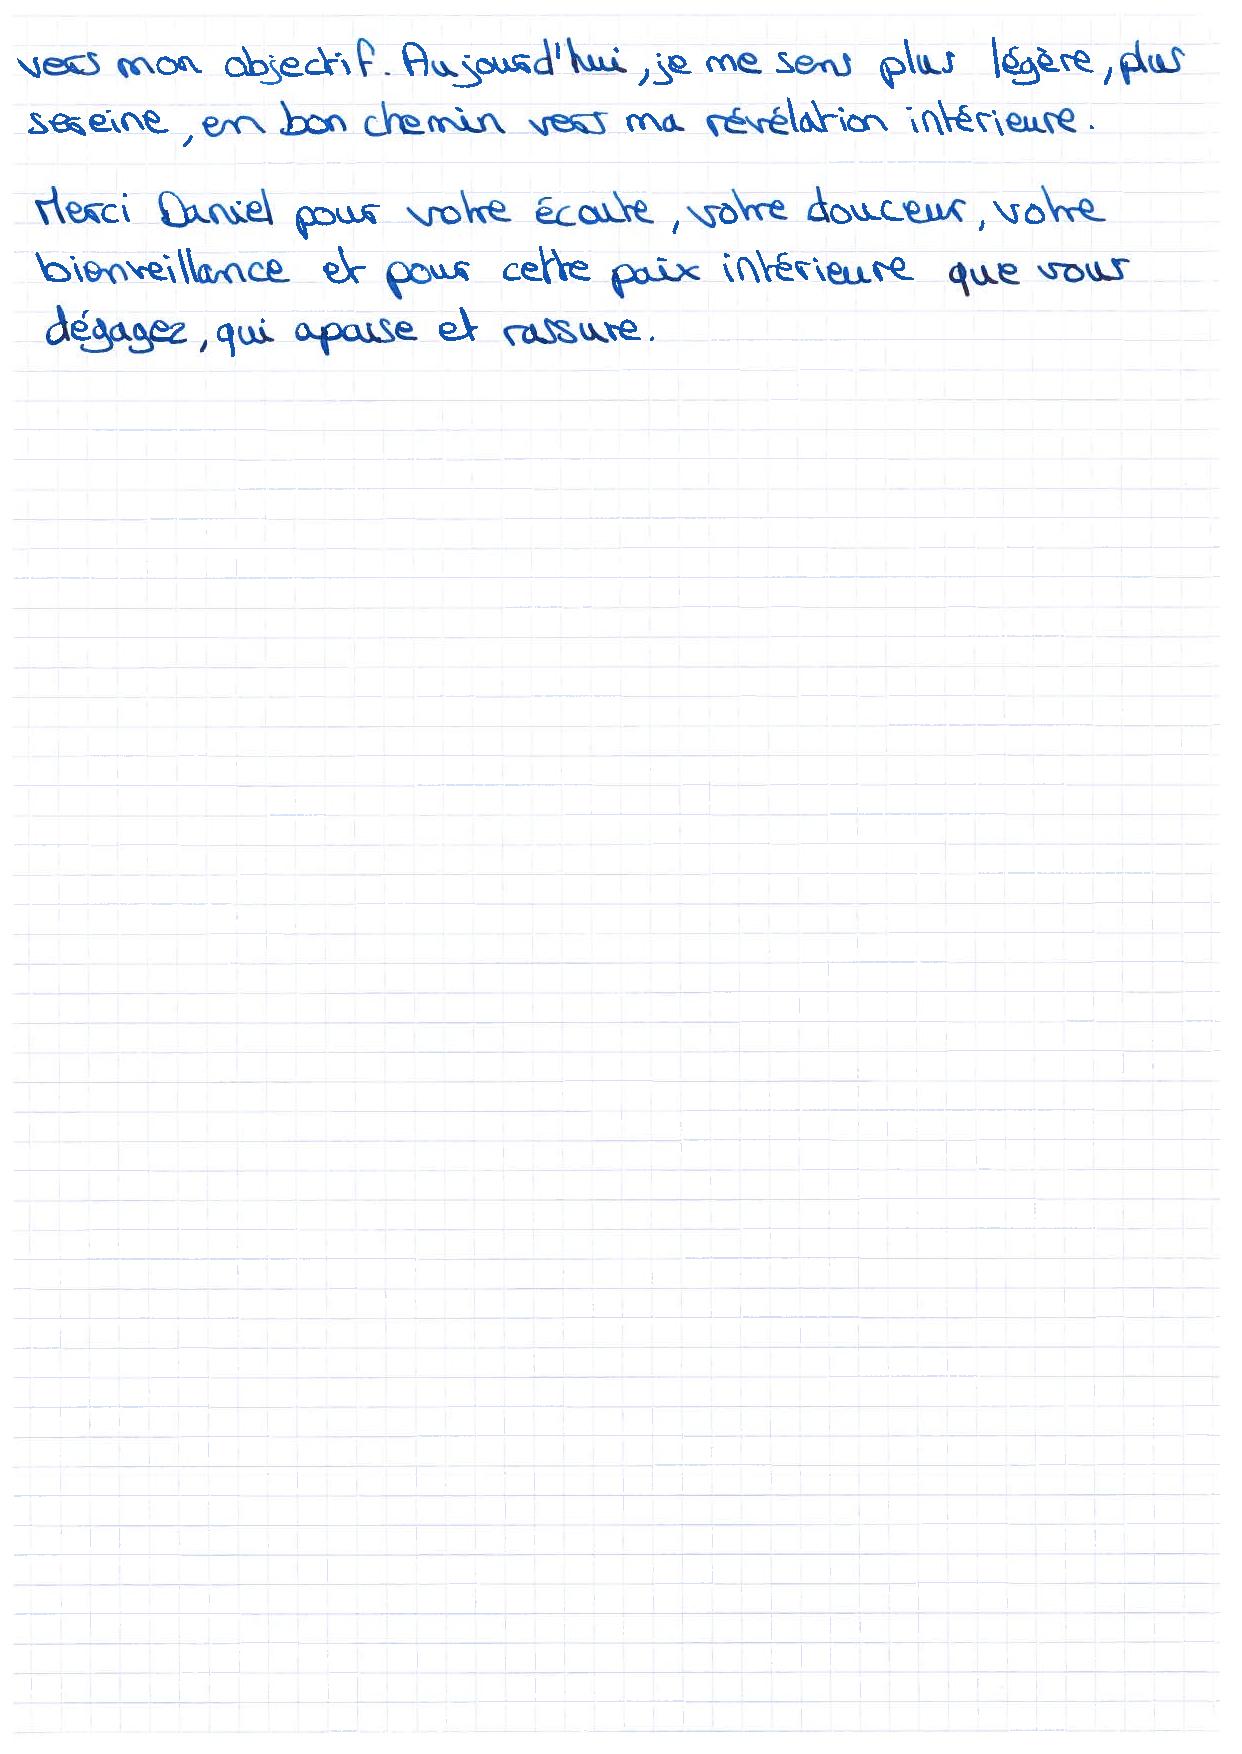 vers mon objectif. Aujourd'hui, je me sens plus légère, plus
sereine, en bon chemin vers ma révélation intérieure.
Merci Daniel pour votre écoute, votre douceur, votre
bienveillance et pour cette paix intérieure que vous
dégagez, qui apaise et rassure.